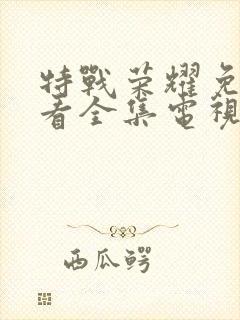 特戰荣耀免
看全集電視
西瓜鳄